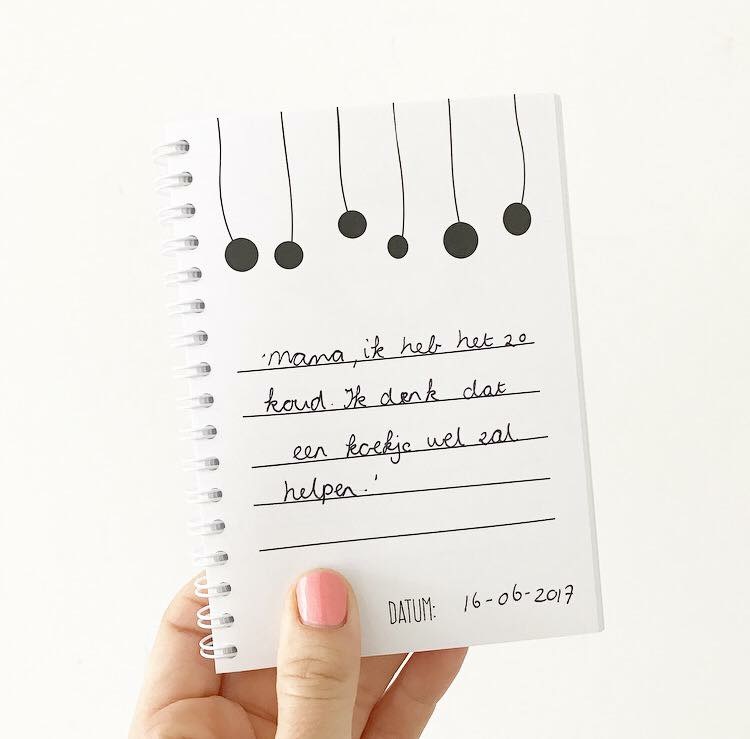 'Mama, ik heb het zo
koud. Ik denk dat
een koekje wel zal
helpen.'
DATUM: 16-06-2017